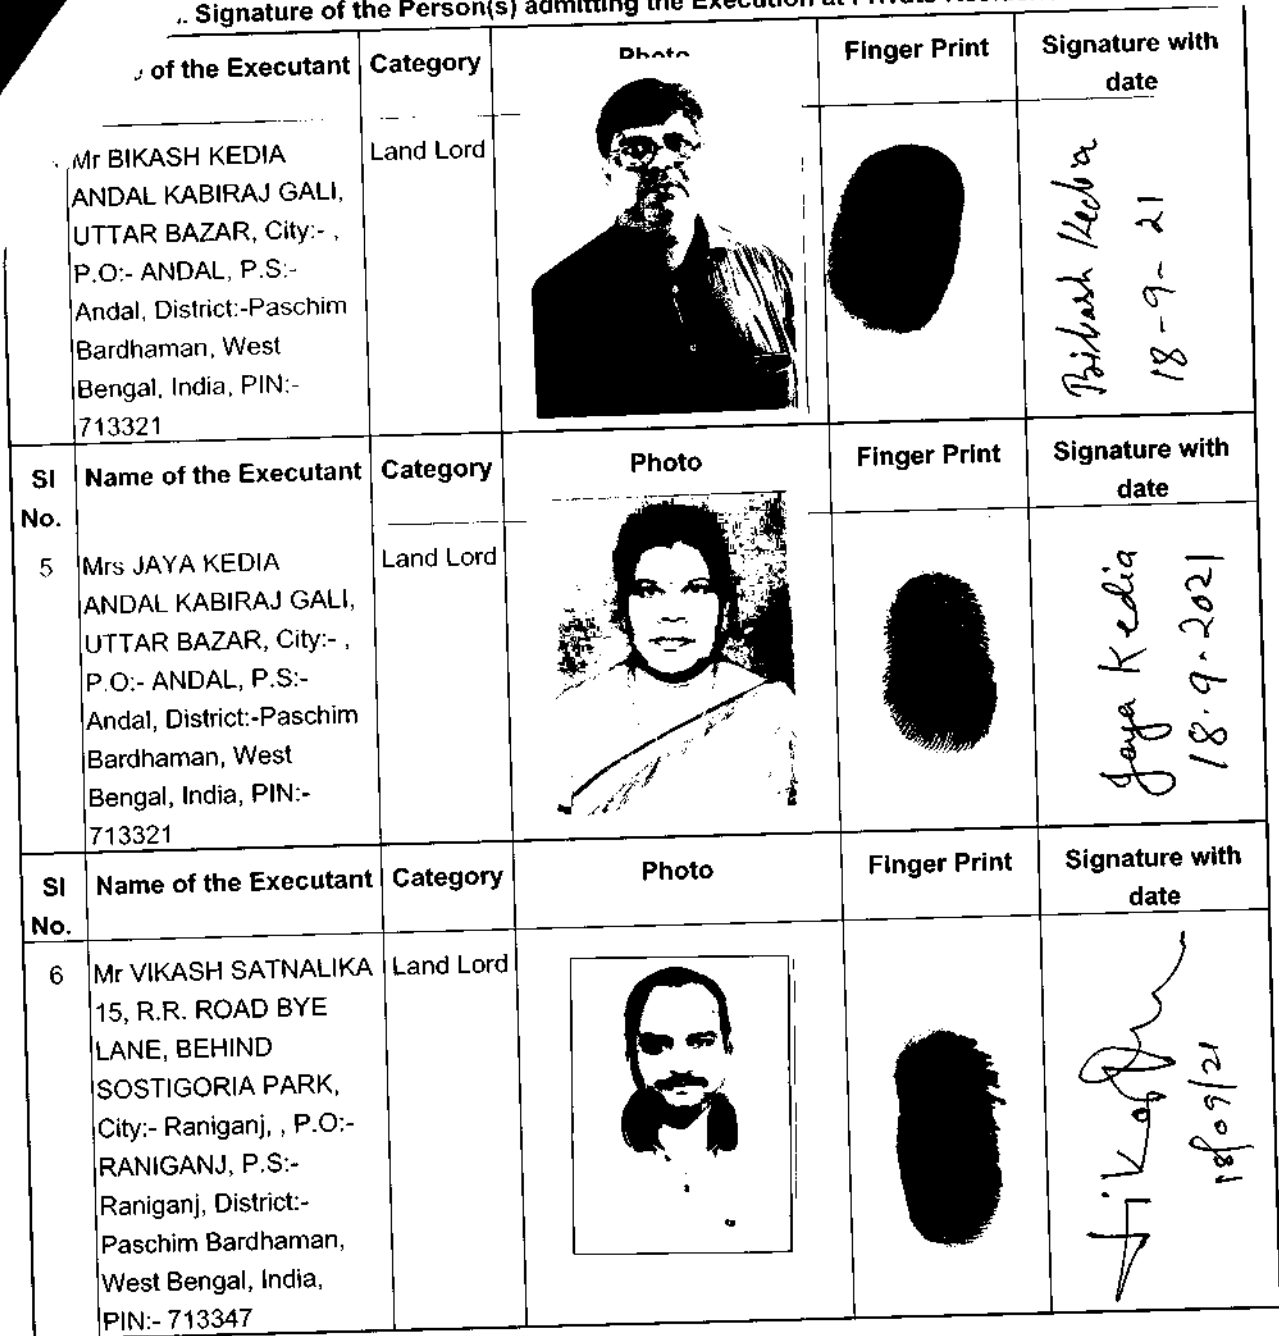 Signature of the Person(s) admitting the Execution at
of the Executant Category Photo Finger Print Signature with date
Mr BIKASH KEDIA
ANDAL KABIRAJ GALI,
UTTAR BAZAR, City:- ,
P.O:- ANDAL, P.S:-
Andal, District:-Paschim
Bardhaman, West
Bengal, India, PIN:-
713321
Land Lord
Bikash Kedia
18-9-21
Sl No. Name of the Executant Category Photo Finger Print Signature with date
5 Mrs JAYA KEDIA
ANDAL KABIRAJ GALI,
UTTAR BAZAR, City:- ,
P.O:- ANDAL, P.S:-
Andal, District:-Paschim
Bardhaman, West
Bengal, India, PIN:-
713321
Land Lord
Jaya Kedia
18.9.2021
Sl No. Name of the Executant Category Photo Finger Print Signature with date
6 Mr VIKASH SATNALIKA
15, R.R. ROAD BYE
LANE, BEHIND
SOSTIGORIA PARK,
City:- Raniganj, , P.O:-
RANIGANJ, P.S:-
Raniganj, District:-
Paschim Bardhaman,
West Bengal, India,
PIN:- 713347
Land Lord
18/09/21